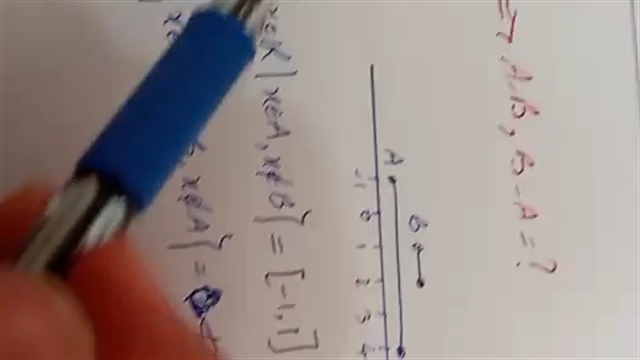 => A-B, B-A = ?
A
B
-1 0 1 2 3 4
x∈R | x∈A, x∉B} = [-1, 1]
, x∉A} =